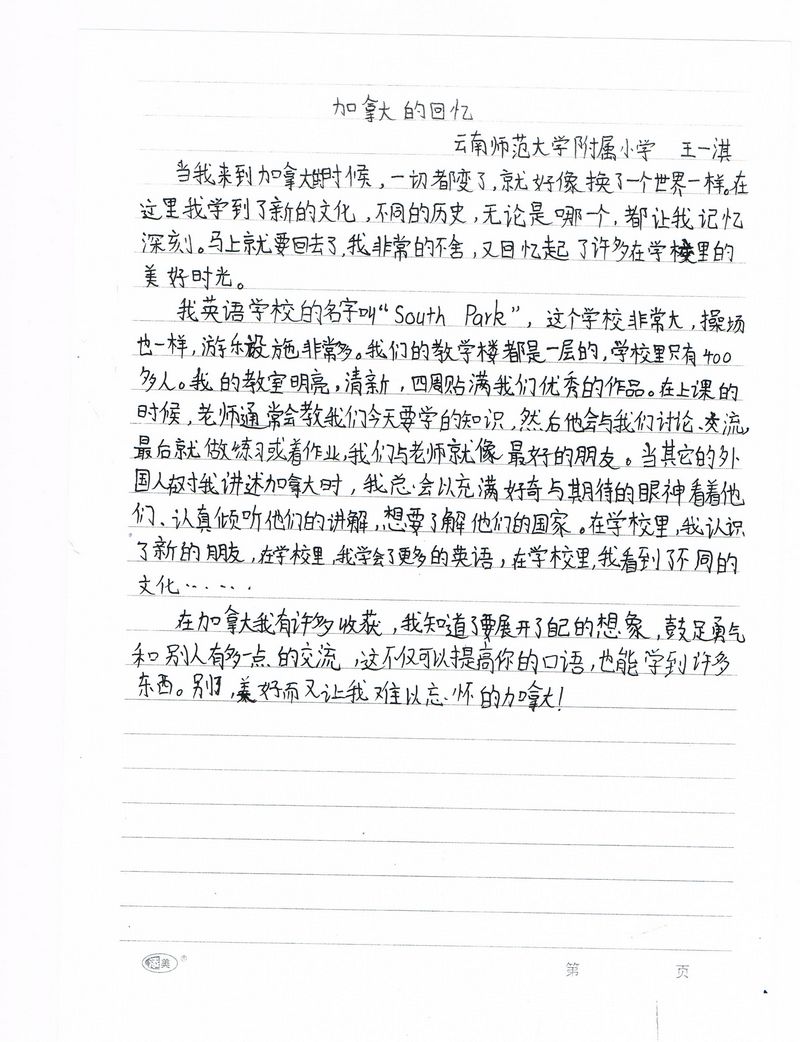 加拿大的回忆
云南师范大学附属小学 王一淇
当我来到加拿大时候，一切都变了，就好像换了一个世界一样。在
这里我学到了新的文化，不同的历史，无论是哪一个，都让我记忆
深刻。马上就要回去了，我非常的不舍，又回忆起了许多在学校里的
美好时光。
我英语学校的名字叫“South Park”，这个学校非常大，操场
也一样，游乐设施非常多。我们的教学楼都是一层的，学校里只有400
多人。我的教室明亮，清新，四周贴满我们优秀的作品。在上课的
时候，老师通常会教我们今天要学的知识，然后他会与我们讨论、交流，
最后就做练习或着作业，我们与老师就像最好的朋友。当其它的外
国人对我讲述加拿大时，我总会以充满好奇与期待的眼神看着他
们、认真倾听他们的讲解，想要了解他们的国家。在学校里，我认识
了新的朋友，在学校里，我学会了更多的英语，在学校里，我看到了不同的
文化……
在加拿大我有许多收获，我知道了要展开了自己的想象，鼓足勇气
和别人有多一点的交流，这不仅可以提高你的口语，也能学到许多
东西。别了，美好而又让我难以忘怀的加拿大！
美
第 页